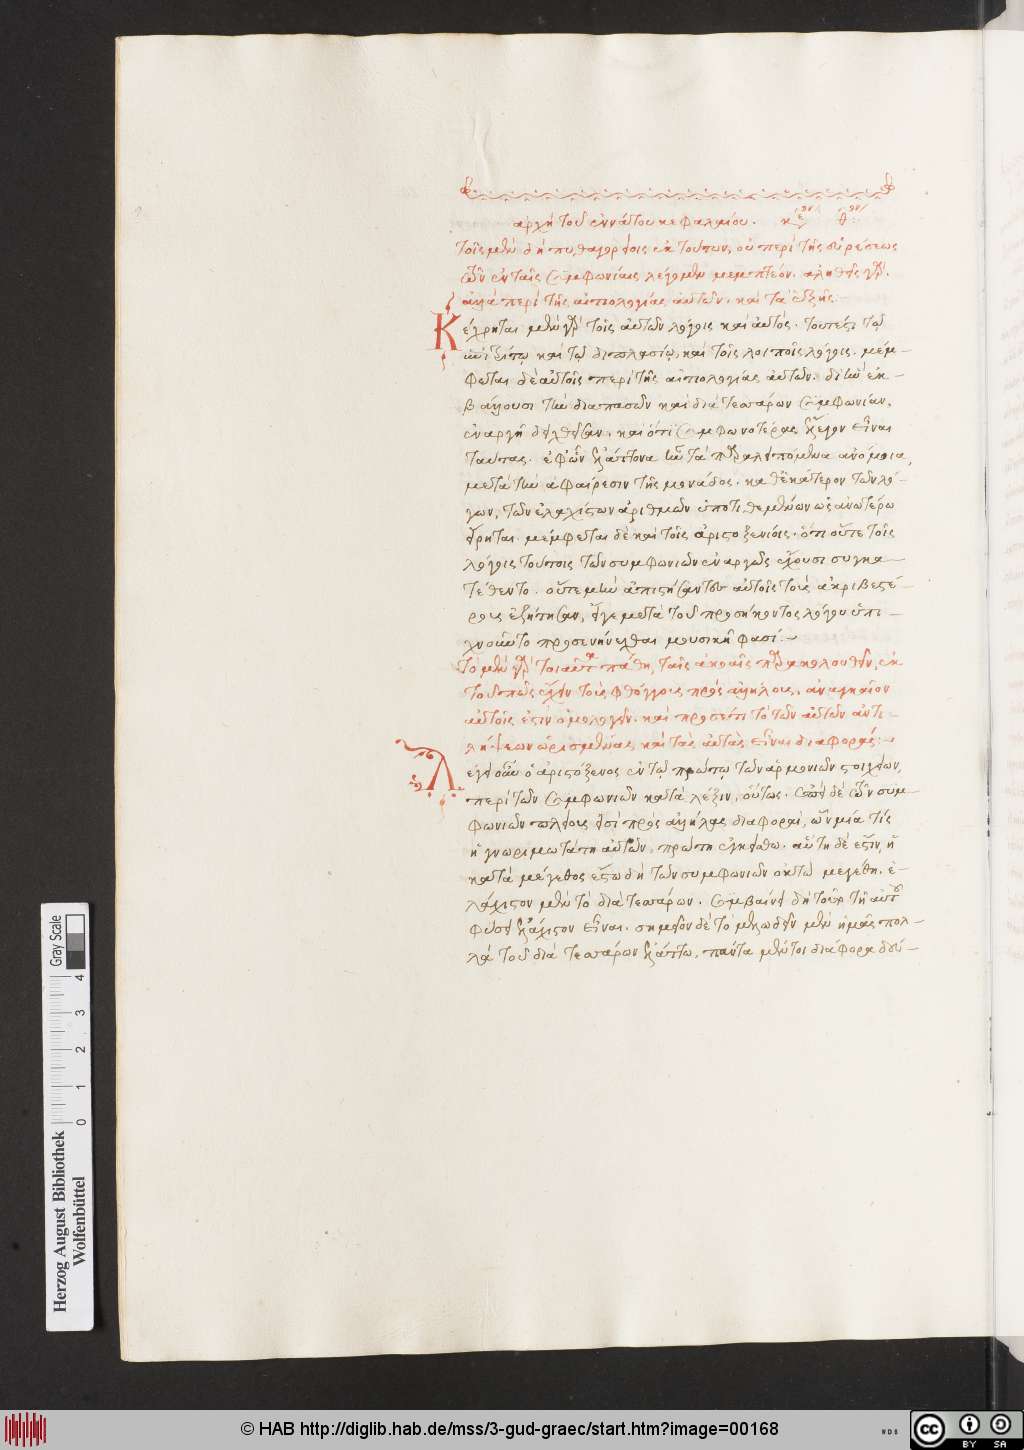 ἀρχὴ τοῦ ἐννάτου κεφαλαίου. κείμενον θον
τοῖς μὲν δὴ πυθαγορείοις ἐκ τούτων, οὐ περὶ τῆς εὑρέσεως
τῶν ἐν ταῖς συμφωνίαις λεγομεν μεμπτέον. ἀληθὴς γὰρ.
ἀλλὰ περὶ τῆς αἰτιολογίας αὐτῶν. καὶ τὰ ἑξῆς:
Κέχρηται μὲν γὰρ τοῖς αὐτῶν λόγοις καὶ αὐτός. τουτέστι τῷ
ἐπιτρίτῳ καὶ τῷ διπλασίῳ, καὶ τοῖς λοιποῖς λόγοις. μέμ-
φεται δὲ αὐτοῖς περὶ τῆς αἰτιολογίας αὐτῶν. δι' ἣν ἐκ-
βάλλουσι τὴν διαπασῶν καὶ διὰ τεσσάρων συμφωνίαν,
ἐναργῆ δειχθεῖσαν. καὶ ὅτι συμφωνοτέρας ἔλεγον εἶναι
ταύτας. ἐφ' ὧν ἐλάττονα ἦν τὰ παραλειπόμενα ἀνόμοια,
μετὰ τὴν ἀφαίρεσιν τῆς μονάδος. καθ' ἑκάτερον τῶν λό-
γων, τῶν ἐλαχίστων ἀριθμῶν ὑποτιθεμένων ὡς ἀνωτέρω
εἴρηται. μέμφεται δὲ καὶ τοῖς ἀριστοξενίοις. ὅτι οὔτε τοῖς
λόγοις τούτοις τῶν συμφωνιῶν ἐναργῶς ἔχουσι συγκα-
τέθεντο. οὔτε μὴν ἀπιστήσαντες αὐτοῖς τοὺς ἀκριβεστέ-
ρους ἐζήτησαν, εἴγε μετὰ τοῦ προσήκοντος λόγου ὑπι-
χνοῦντο προσενήνεχθαι μουσικῇ φασί:
Τὸ μὲν γὰρ τοιαῦτα πάθη, ταῖς ἀκοαῖς παρακολουθεῖν, ἐκ
τοῦ πῶς ἔχειν τοὺς φθόγγους πρὸς ἀλλήλους, ἀναγκαῖον
αὐτοῖς ἐστὶν ὁμολογεῖν. καὶ προσέτι τὸ τῶν αὐτῶν ἀντι-
λήψεων ὡρισμένας, καὶ τὰς αὐτὰς εἶναι διαφοράς:
Λέγει οὖν ὁ ἀριστόξενος ἐν τῷ πρώτῳ τῶν ἁρμονιῶν στοιχείων,
περὶ τῶν συμφωνιῶν κατὰ λέξιν, οὕτως. ἐπεὶ δὲ τῶν συμ-
φωνιῶν πλείους εἰσὶ πρὸς ἀλλήλας διαφοραὶ, ὧν μία τίς
ἡ γνωριμωτάτη αὐτῶν, πρώτη ἐκκείσθω. αὕτη δὲ ἐστὶν, ἡ
κατὰ μέγεθος ἔστω δὴ τῶν συμφωνιῶν ὀκτὼ μεγέθη. ἐ-
λάχιστον μὲν τὸ διὰ τεσσάρων. συμβαίνει δὴ τοῦτο τῇ αὐτοῦ
φύσει ἐλάχιστον εἶναι. σημεῖον δὲ τὸ μελωδεῖν μὲν ἡμᾶς πολ-
λὰ τοῦ διὰ τεσσάρων ἐλάττω, πάντα μέντοι διάφορα δού-
Herzog August Bibliothek
Wolfenbüttel
Gray Scale
0 1 2 3 4
© HAB http://diglib.hab.de/mss/3-gud-graec/start.htm?image=00168
WDB
cc BY SA